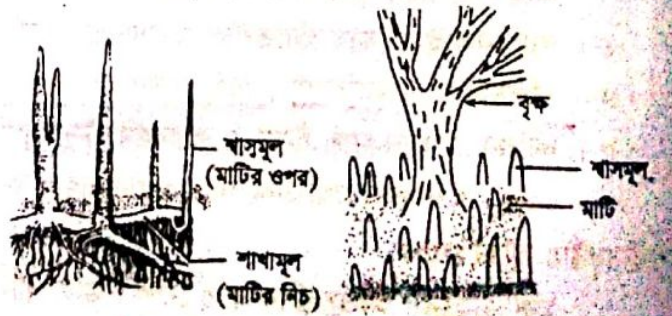 শ্বাসমূল
(মাটির ওপর)
শাখামূল
(মাটির নিচ)
বৃক্ষ
শ্বাসমূল
মাটি